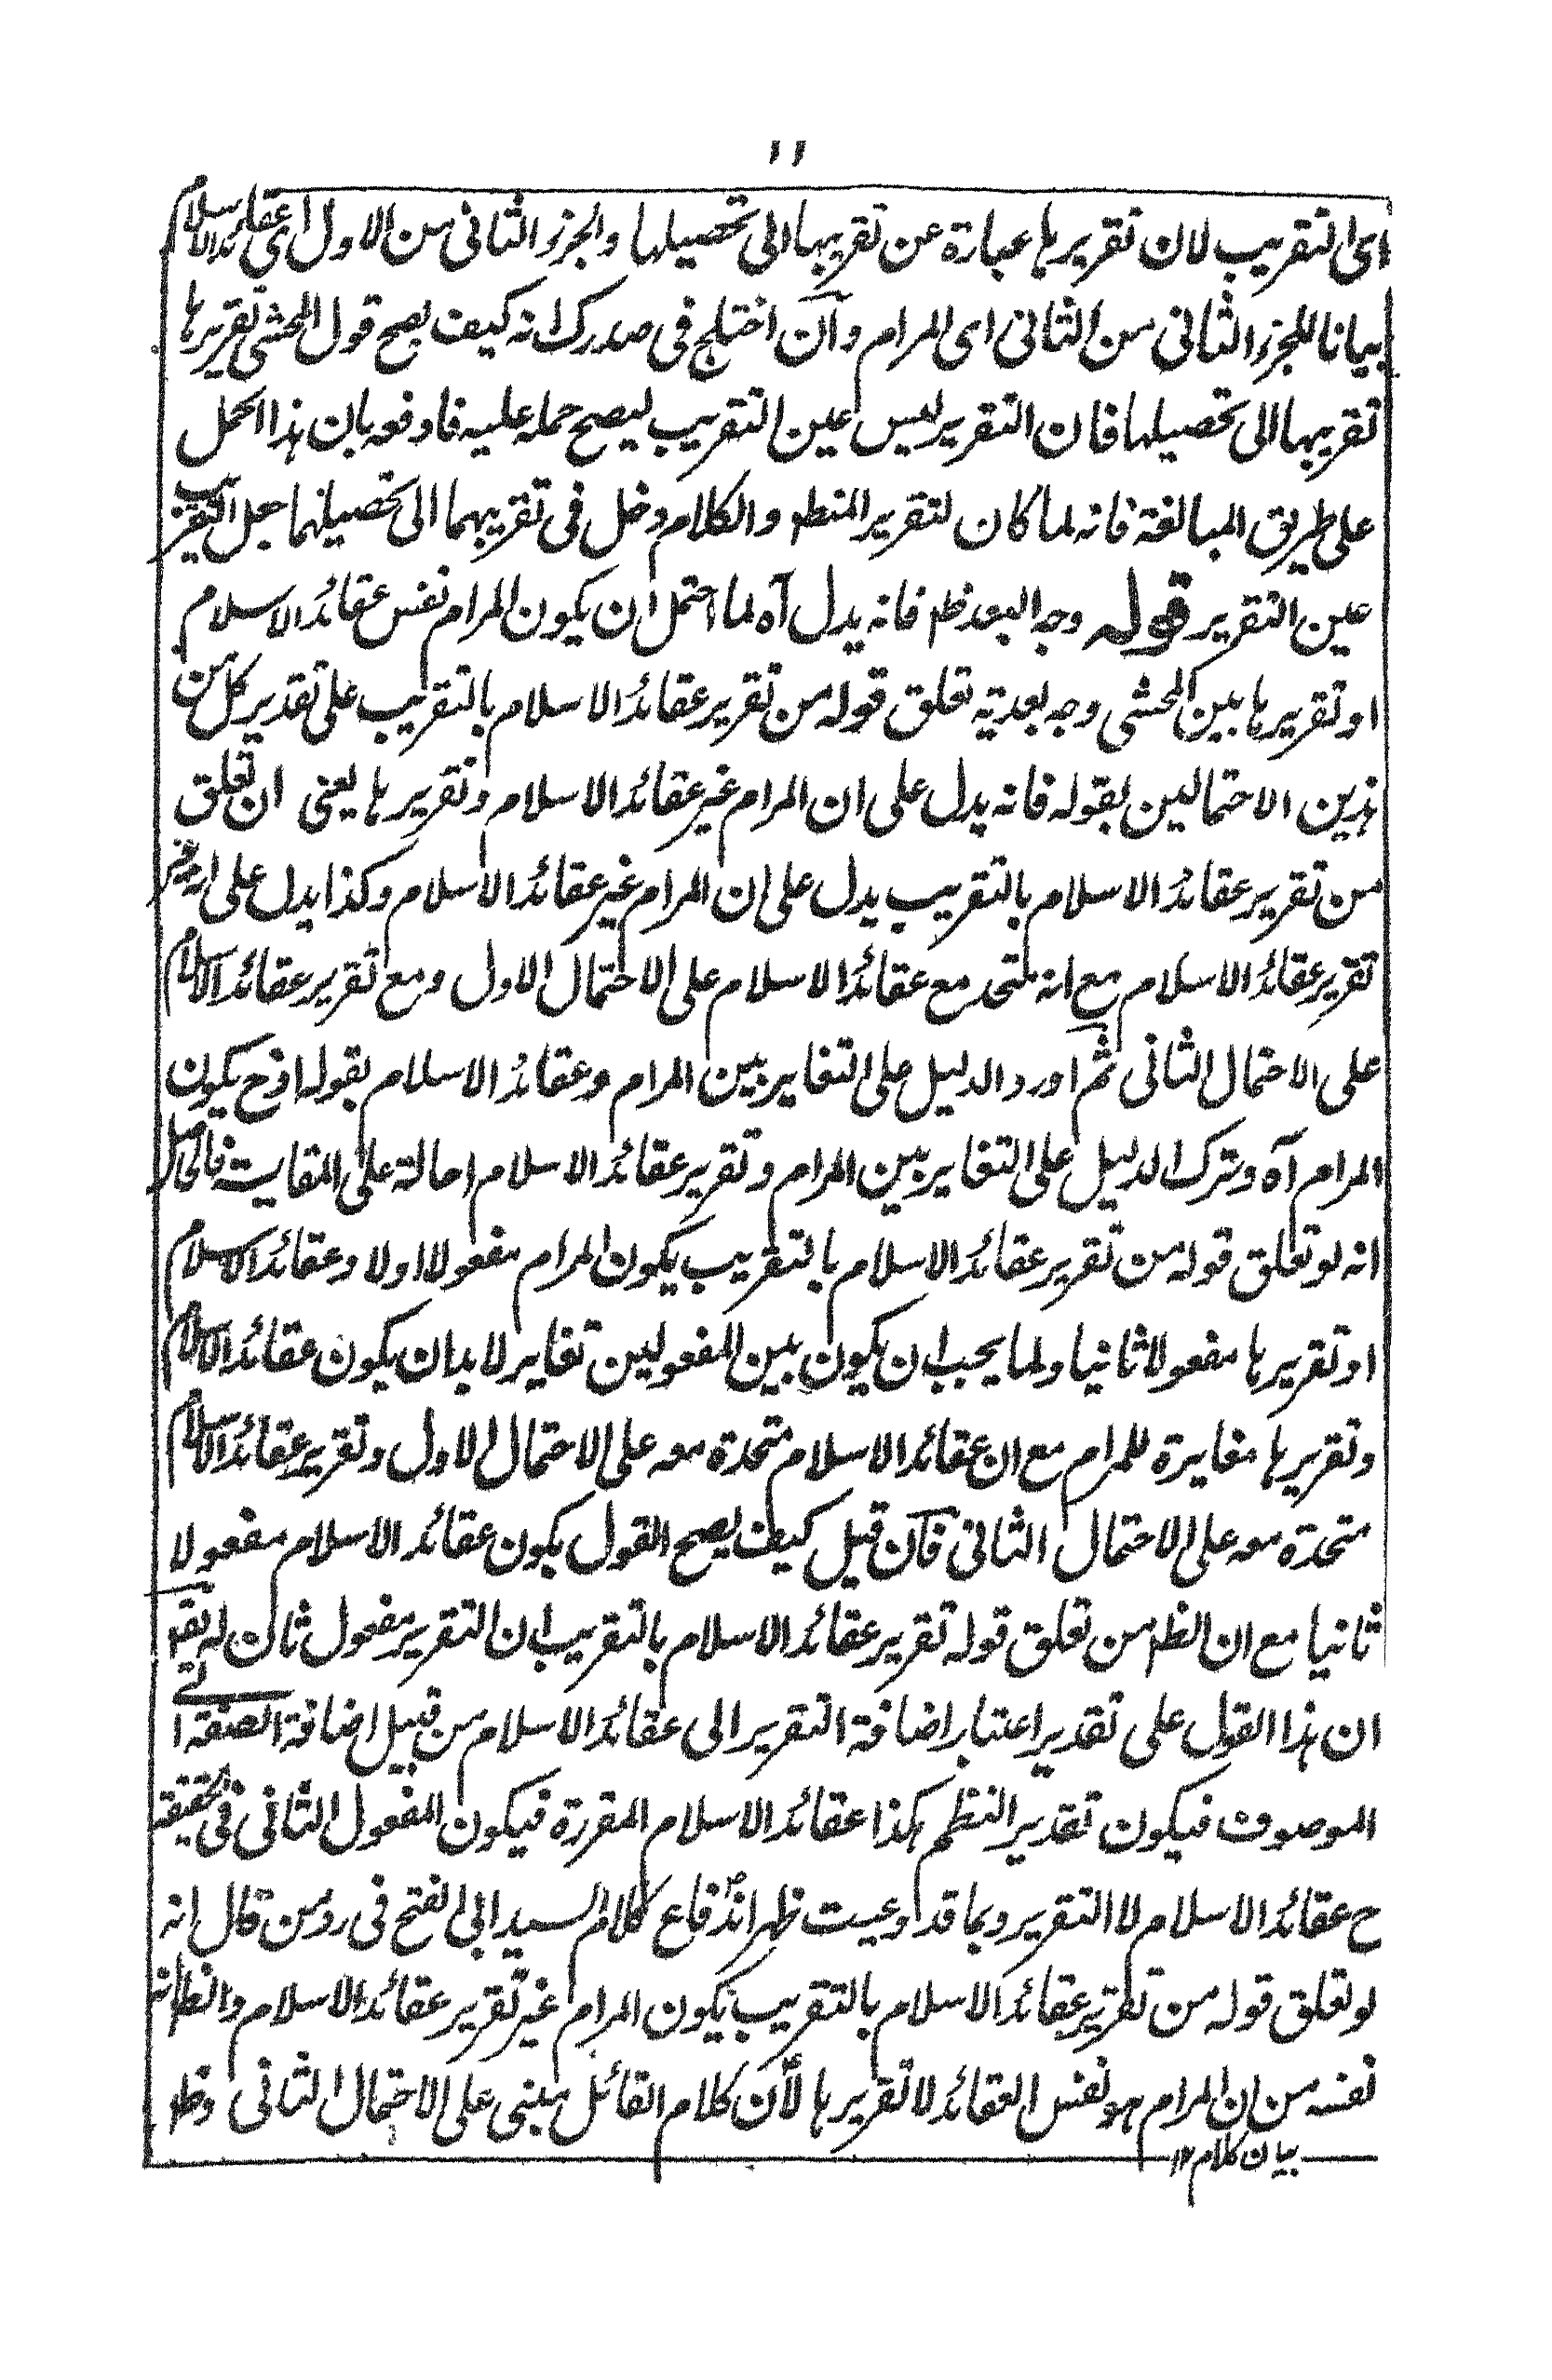 ۱۱
اى التقريب لان تقريرها عبارة عن تقريبها الى تحصيلها والجزء الثانى من الاول اى عقائد الاسلام
بيانا للجزء الثانى من الثانى اى المرام وان اختلج فى صدرك انه كيف يصح قول المحشى تقريرها
تقريبها الى تحصيلها فان التقرير ليس عين التقريب ليصح حمله عليه فادفعه بان هذا الحمل
على طريق المبالغة فانه لما كان لتقرير المنط والكلام دخل فى تقريبهما الى تحصيلهما جعل التقريب
عين التقرير قوله وجه البعد ظ فانه يدل آه لما احتمل ان يكون المرام نفس عقائد الاسلام
او تقريرها بين المحشى وجه بعدية تعلق قوله من تقرير عقائد الاسلام بالتقريب على تقدير كل من
هذين الاحتمالين بقوله فانه يدل على ان المرام غير عقائد الاسلام وتقريرها يعنى ان تعلق
من تقرير عقائد الاسلام بالتقريب يدل على ان المرام غير عقائد الاسلام وكذا يدل على
تقرير عقائد الاسلام مع انه متحد مع عقائد الاسلام على الاحتمال الاول ومع تقرير عقائد الاسلام
على الاحتمال الثانى ثم اورد الدليل على التغاير بين المرام وعقائد الاسلام بقوله اذ ح يكون
المرام آه وترك الدليل على التغاير بين المرام وتقرير عقائد الاسلام احالة على المقايسة فالحاصل
انه لو تعلق قوله من تقرير عقائد الاسلام بالتقريب يكون المرام مفعولا اولا وعقائد الاسلام
او تقريرها مفعولا ثانيا ولما يجب ان يكون بين المفعولين تغاير لا بد ان يكون عقائد الاسلام
وتقريرها مغايرة للمرام مع ان عقائد الاسلام متحدة معه على الاحتمال الاول وتقرير عقائد الاسلام
متحدة معه على الاحتمال الثانى فان قيل كيف يصح القول بكون عقائد الاسلام مفعولا
ثانيا مع ان الظ من تعلق قوله تقرير عقائد الاسلام بالتقريب ان التقرير مفعول ثان له يقو
ان هذا القول على تقدير اعتبار اضافة التقرير الى عقائد الاسلام من قبيل اضافة الصفة الى
الموصوف فيكون تقدير النظم هكذا عقائد الاسلام المقررة فيكون المفعول الثانى فى الحقيقة
ح عقائد الاسلام لا التقرير وبما قد اوعيت ظهر اندفاع كلام السيد ابى الفتح فى رد من قال انه
لو تعلق قوله من تقرير عقائد الاسلام بالتقريب يكون المرام غير تقرير عقائد الاسلام والظ انه
نفسه من ان المرام هو نفس العقائد لا تقريرها لان كلام القائل مبنى على الاحتمال الثانى وظ
بيان كلام ۱۲